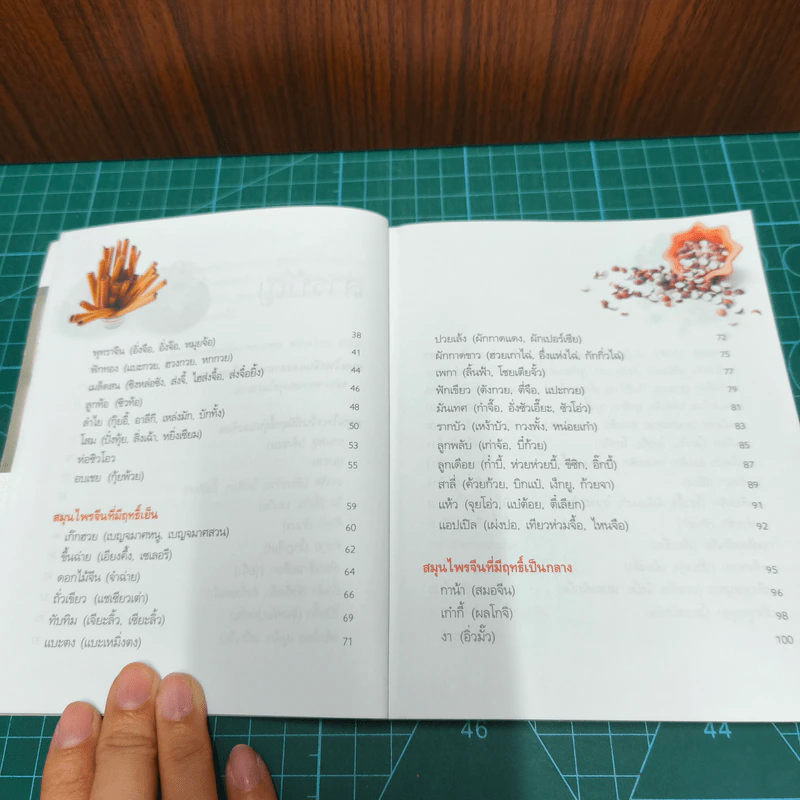 พุทราจีน (อั่งจือ, อั่งจ้อ, หมุยจ้อ) 38
ฟักทอง (แบะกวย, ฮวงกวย, หากวย) 41
เมล็ดสน (ซิงหล่อซิง, ส่งจี้, ไฮส่งจื้อ, ส่งจื่อยิ้ง) 44
ลูกท้อ (ชิวท้อ) 46
ลำไย (กุ้ยอี้, อาลีกี, เหล่งมัก, บักทั้ง) 48
โสม (ปังทุ้ย, สิ่งเฉ้า, หยิ่งเซียม) 50
ห่อซิวโอว 53
อบเชย (กุ้ยพ้วย) 55
สมุนไพรจีนที่มีฤทธิ์เย็น 59
เก๊กฮวย (เบญจมาศหนู, เบญจมาศสวน) 60
ขึ้นฉ่าย (เฮียงคึ้ง, เซเลอรี) 62
ดอกไม้จีน (จำฉ่าย) 64
ถั่วเขียว (แชเชียวเต่า) 66
ทับทิม (เจียะลิ้ว, เซียะลิ้ว) 69
แบะตง (แบะเหมิ่งตง) 71
ปวยเล้ง (ผักกาดแดง, ผักเปอร์เซีย) 72
ผักกาดขาว (ฮวยเกาไฉ่, อึ่งแห่งไฉ่, กักกิ่วไฉ่) 75
เพกา (ลิ้นฟ้า, โซยเตียจั้ว) 77
ฟักเขียว (ตังกวย, ตี่จือ, แปะกวย) 79
มันเทศ (กำจี๊อ, อั่งชัวเอี๊ยะ, ชัวโอ่ว) 81
รากบัว (เหง้าบัว, กวงพั้ง, หน่อยเก๋า) 83
ลูกพลับ (เก่าจ้อ, บี่ก้วย) 85
ลูกเดือย (ก๋ำบี้, ห่วยห่วยบี้, ชีซิก, อิ๊กบี้) 87
สาลี่ (ค้วยก้วย, บิกแป๋, เง็กยู, ก้วยจา) 89
แห้ว (จุยโอ่ว, แบ่ต้อย, ตี๋เลียก) 91
แอปเปิล (เผ่งปอ, เทียวห่วมจื้อ, ไหนจือ) 92
สมุนไพรจีนที่มีฤทธิ์เป็นกลาง 95
กาน้า (สมอจีน) 96
เก๋ากี้ (ผลโกจิ) 98
งา (อิ่วมั้ว) 100
46
44